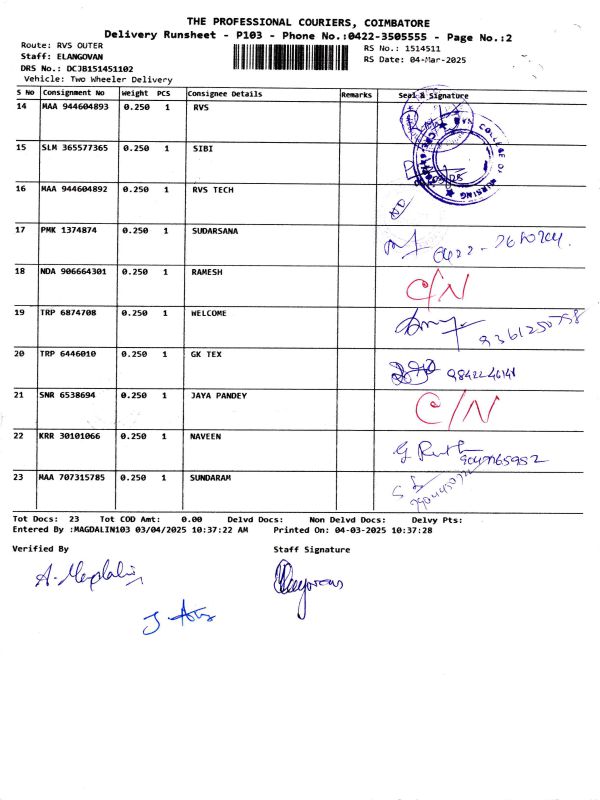 THE PROFESSIONAL COURIERS, COIMBATORE
Delivery Runsheet - P103 - Phone No.:0422-3505555 - Page No.:2
Route: RVS OUTER
RS No.: 1514511
Staff: ELANGOVAN
RS Date: 04-Mar-2025
DRS No.: DCJB151451102
Vehicle: Two Wheeler Delivery
S No Consignment No Weight PCS Consignee Details Remarks Seal & Signature
14 MAA 944604893 0.250 1 RVS
15 SLM 365577365 0.250 1 SIBI
COLLEGE OF NURSING
16 MAA 944604892 0.250 1 RVS TECH
17 PMK 1374874 0.250 1 SUDARSANA
18 NDA 906664301 0.250 1 RAMESH C/N
19 TRP 6874708 0.250 1 WELCOME 9361250758
20 TRP 6446010 0.250 1 GK TEX
21 SNR 6538694 0.250 1 JAYA PANDEY C/N
22 KRR 30101066 0.250 1 NAVEEN
23 MAA 707315785 0.250 1 SUNDARAM
Tot Docs: 23 Tot COD Amt: 0.00 Delvd Docs: Non Delvd Docs: Delvy Pts:
Entered By :MAGDALIN103 03/04/2025 10:37:22 AM Printed On: 04-03-2025 10:37:28
Verified By Staff Signature